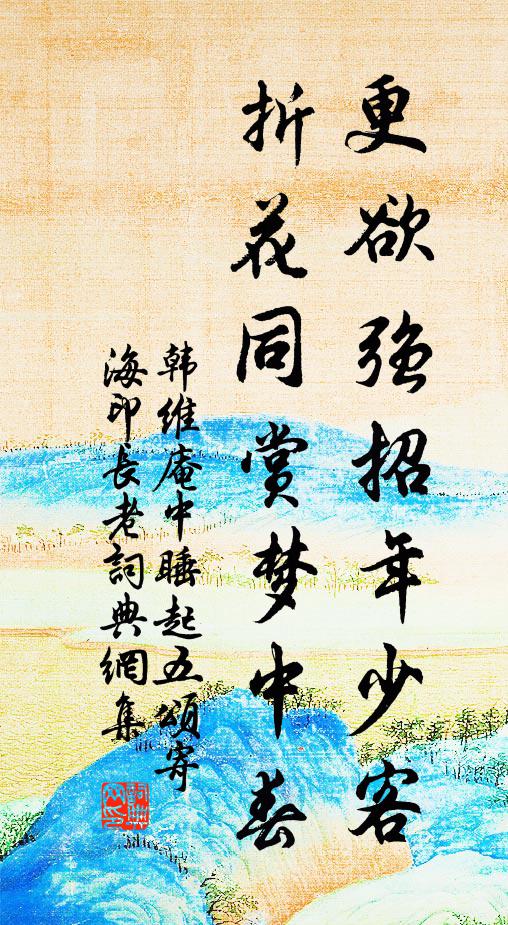 更欲强招年少客
折花同赏梦中春
韩维庵中睡起五颂寄
海印长老詞典網集